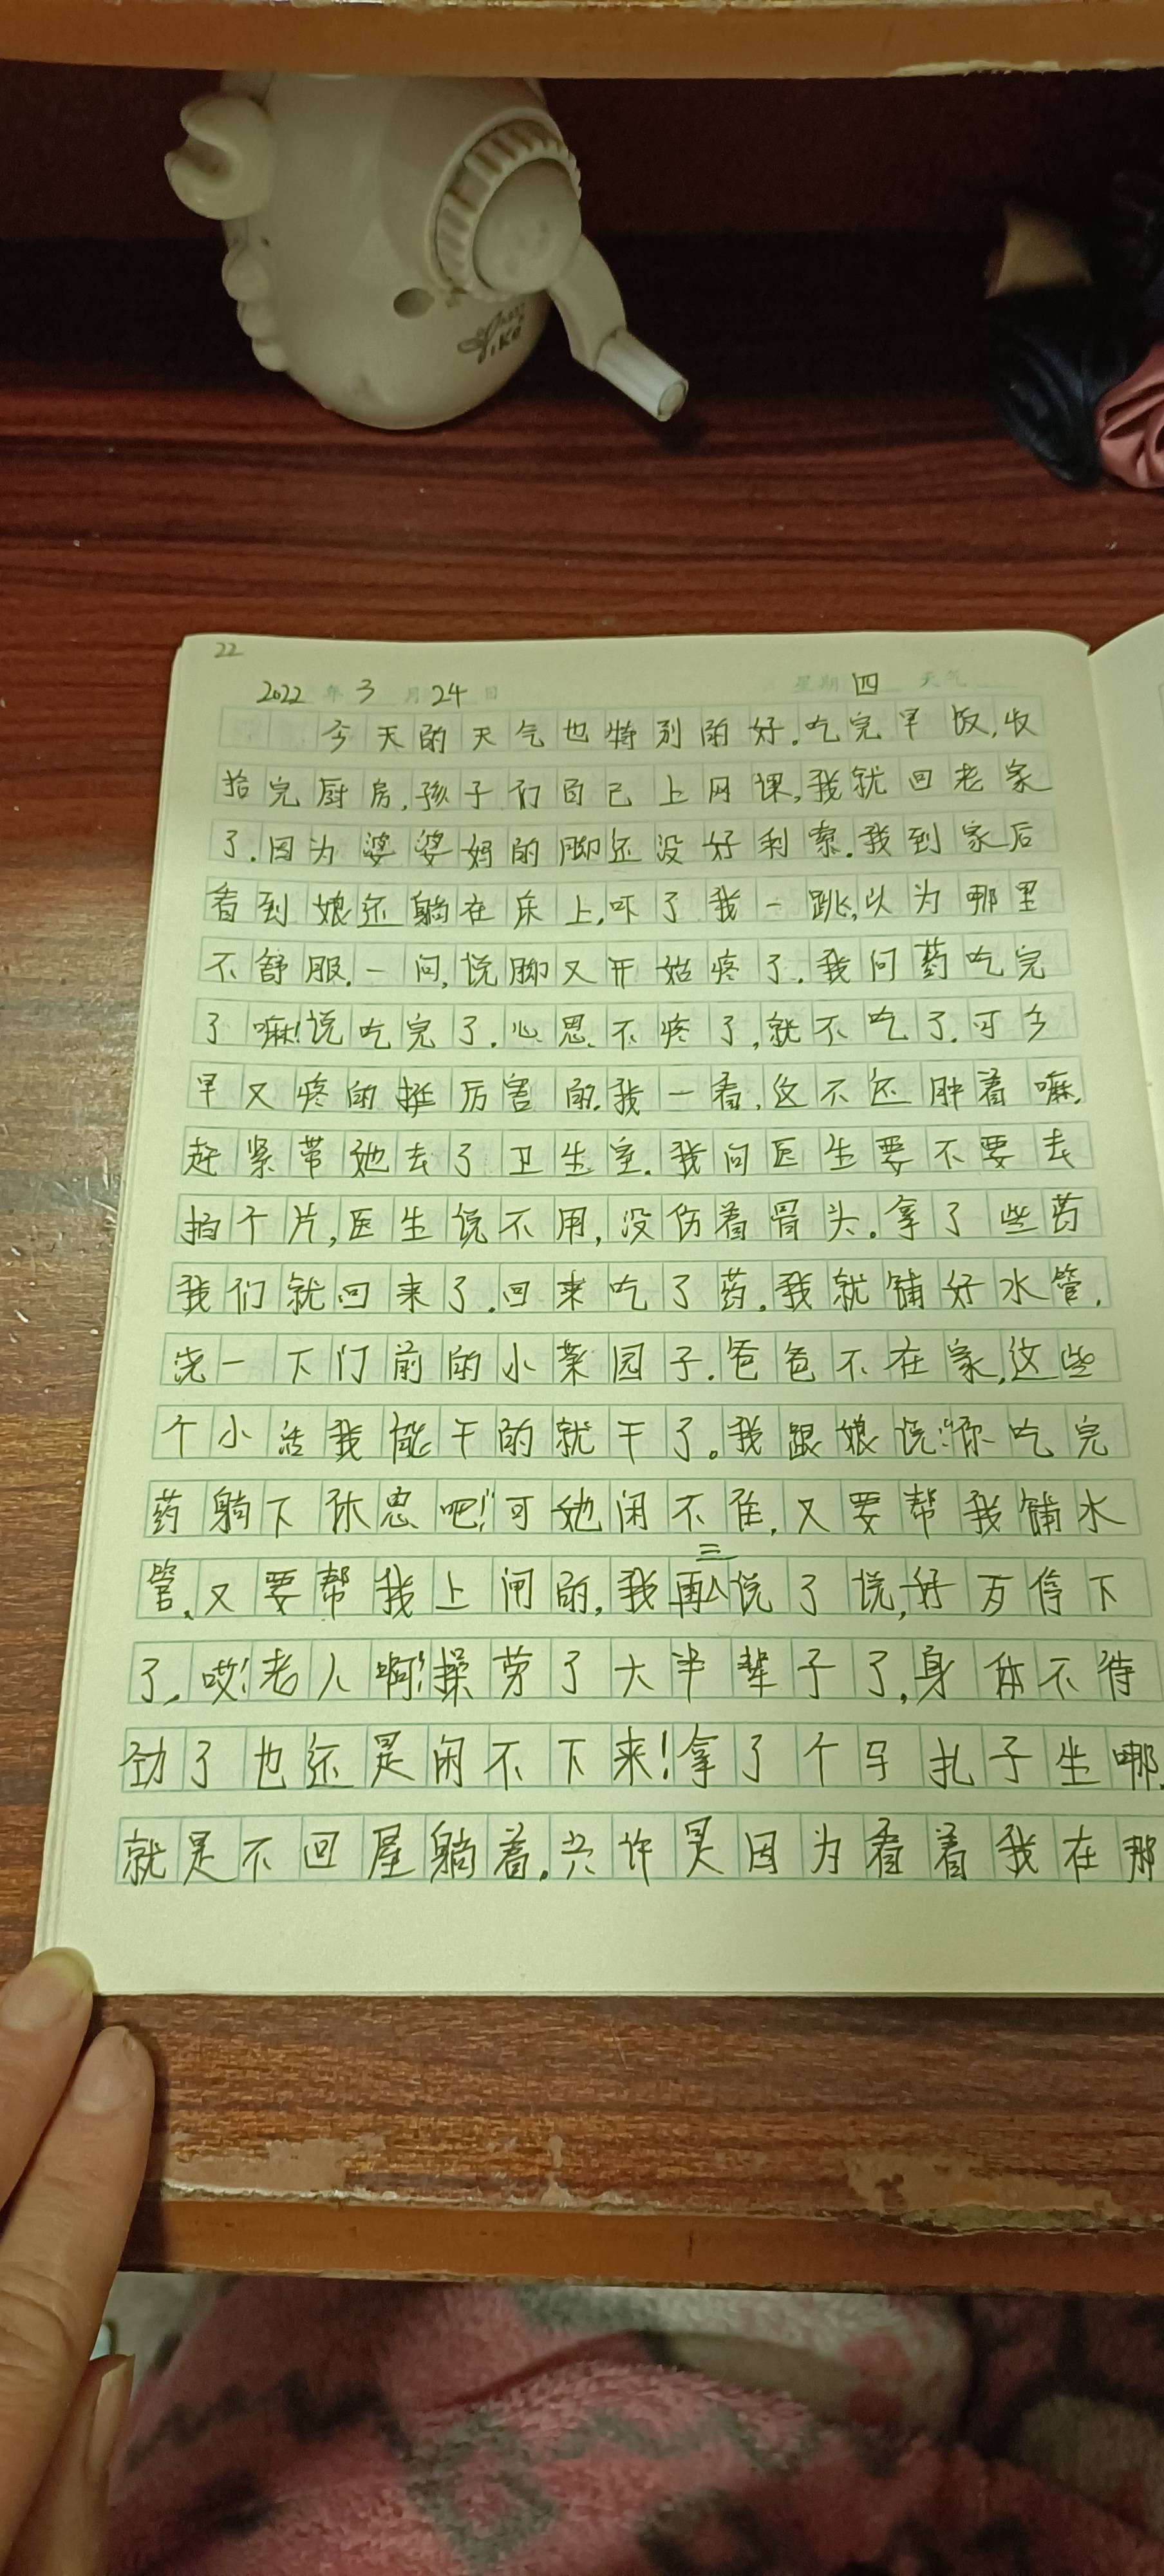 22
2022年3月24日 星期四 天气
今天的天气也特别的好.吃完早饭,收
拾完厨房,孩子们自己上网课,我就回老家
了.因为婆婆妈的脚还没好利索.我到家后
看到娘还躺在床上,吓了我一跳,以为哪里
不舒服.一问,说脚又开始疼了.我问药吃完
了嘛!说吃完了.心思不疼了,就不吃了.可今
早又疼的挺厉害的.我一看,这不还肿着嘛.
赶紧带她去了卫生室.我问医生要不要去
拍个片,医生说不用,没伤着骨头.拿了些药
我们就回来了.回来吃了药.我就铺好水管.
浇一下门前的小菜园子.爸爸不在家,这些
个小活我能干的就干了。我跟娘说:"你吃完
药躺下休息吧!"可她闲不住,又要帮我铺水
管,又要帮我上闸的,我再三说了说,好歹停下
了,哎!老人啊!操劳了大半辈子了,身体不待
劲了也还是闲不下来!拿了个马扎子坐哪,
就是不回屋躺着.兴许是因为看着我在那